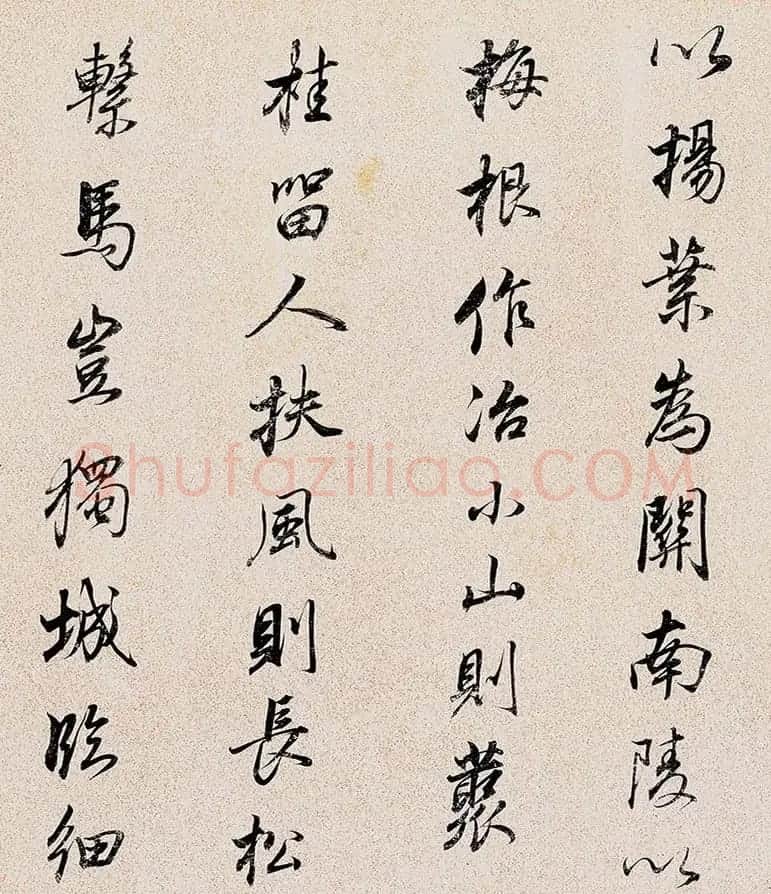 以揚葉為關南陵以
梅根作冶小山則藂
桂留人扶風則長松
繫馬豈獨城臨細
Shufaziliao.COM